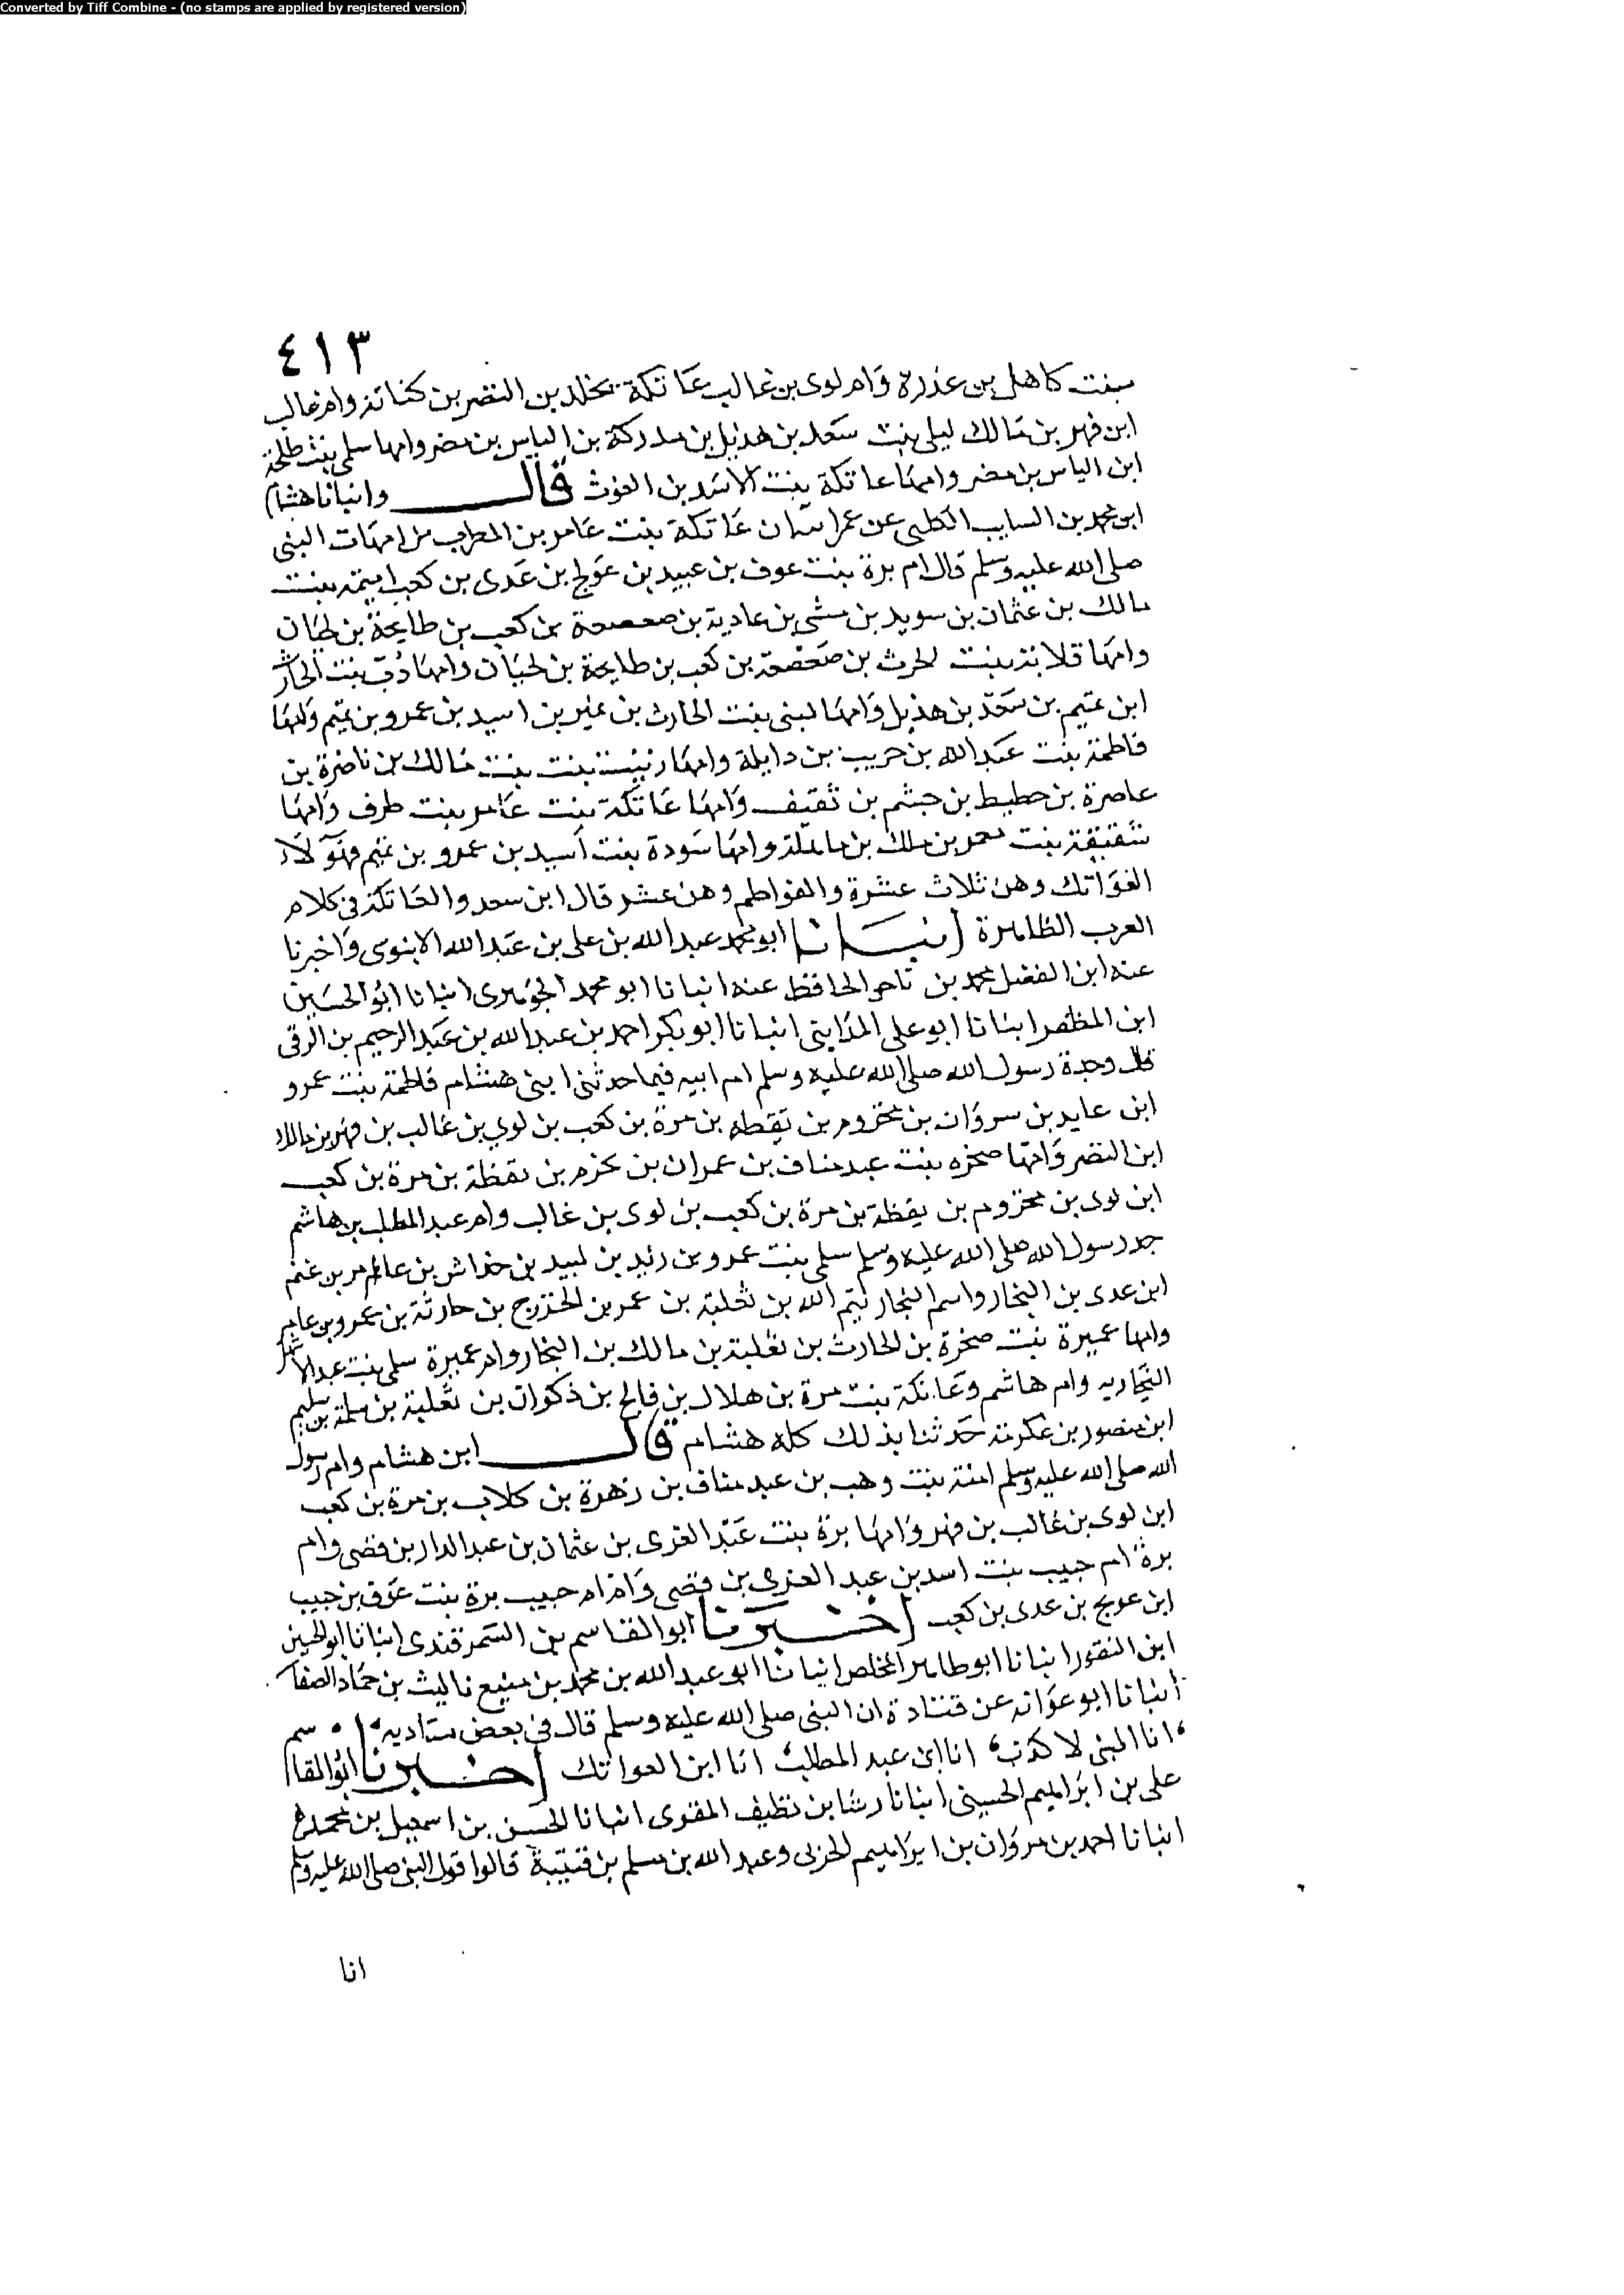 Converted by Tiff Combine - (no stamps are applied by registered version)
٤١٣
بنت كاهل بن عذرة وام لوى بن غالب عاتكة يخلد بن النضر بن كنانة وام غالب
ابن فهر بن مالك ليلى بنت سعد بن هذيل بن مدركة بن الياس بن مضر وامها سلمى بنت طلحة
ابن الياس بن مضر وامها عاتكة بنت الاسد بن الغوث قال وانبانا هشام
ابن محمد بن السايب الكلبى عن عاتكة بنت عامر بن الظرب من امهات النبى
صلى الله عليه وسلم قال ام برة بنت عوف بن عبيد بن عولج بن عدى بن كعب اميمة بنت
مالك بن عثمان بن سويد بن حشى بن عادية بن صعصعة بن كعب بن طابخة بن لحيان
وامها قلابة بنت الحرث بن صعصعة بن كعب بن طابخة بن لحيان وامها دب بنت الحارث
ابن تميم بن سعد بن هذيل وامها لبنى بنت الحارث بن نمير بن اسيد بن عمرو بن تميم وامها
فاطمة بنت عبد الله بن حريب بن وايلة وامها زينب بنت بنت مالك بن ناضرة بن
عاصرة بن حطيط بن جشم بن ثقيف وامها عاتكة بنت عامر بنت طرف وامها
شقيقة بنت معمر بن ملك بن وامها سودة بنت اسيد بن عمرو بن تميم فهؤلاء
العواتك وهن ثلاث عشرة والفواطم وهن عشر قال ابن سعد والعاتكة فى كلام
العرب الطاهرة انبانا ابو محمد عبد الله بن على بن عبد الله الابنوى واخبرنا
عنه ابن الفضل محمد بن ناصر الحافظ عنه انبانا ابو محمد الجوهرى انبانا ابو الحسين
ابن المظفر انبانا ابو على المدايني انبانا ابو بكر احمد بن عبد الله بن عبد الرحيم بن الرقى
قال وجدة رسول الله صلى الله عليه وسلم ام ابيه فيما حدثنى ابن هشام فاطمة بنت عمرو
ابن عايد بن سروان بن مخزوم بن يقظه بن مرة بن كعب بن لوي بن غالب بن فهر بن مالك
ابن النضر وامها صخره بنت عبد مناف بن عمران بن مخزم بن يقظة بن مرة بن كعب
ابن لوى بن مخزوم بن يقظة بن مرة بن كعب بن لوى بن غالب وام عبد المطلب بن هاشم
جد رسول الله صلى الله عليه وسلم سلمى بنت عمرو بن زيد بن لبيد بن خداش بن عامر بن غنم
ابن عدى بن النجار واسم النجار تيم الله بن ثعلبة بن عمر بن الخزرج بن حارثة بن عمرو بن عامر
وامها عميرة بنت صخرة بن الحارث بن ثعلبة بن مالك بن النجار وام عميرة سلمى بنت عبد الاشهل
النجاريه وام هاشم وعاتكة بنت مرة بن هلال بن فالج بن ذكوان بن ثعلبة بن سلمة بن سليم
ابن منصور بن عكرمة حدثنا بذلك كله هشام قال ابن هشام وام رسول
الله صلى الله عليه وسلم امنة بنت وهب بن عبد مناف بن زهرة بن كلاب بن مرة بن كعب
ابن لوى بن غالب بن فهر وامها برة بنت عبد العزى بن عثمان بن عبد الدار بن قصى وام
برة ام حبيب بنت اسد بن عبد العزى بن قصى وام ام حبيب برة بنت عوف بن جيب
ابن عويج بن عدى بن كعب اخبرنا ابو القاسم بن السمرقندى انبانا ابو الحسين
ابن النقور انبانا ابو طاهر المخلص انبانا ابو عبد الله بن محمد بن منيع نا ليث بن حماد الصفار
أنبانا ابو عوانه عن قتادة ان النبى صلى الله عليه وسلم قال فى بعض
انا النبى لا كذب انا ابن عبد المطلب انا ابن العواتك اخبرنا ابو القاسم
على بن ابراهيم الحسينى انبانا رشا بن نظيف المقرى انبانا الحسن بن اسمعيل بن محمد
انبانا احمد بن مروان بن ابراهيم الحربى وعبد الله بن مسلم بن قتيبة قالوا قول النبى صلى الله عليه وسلم
انا